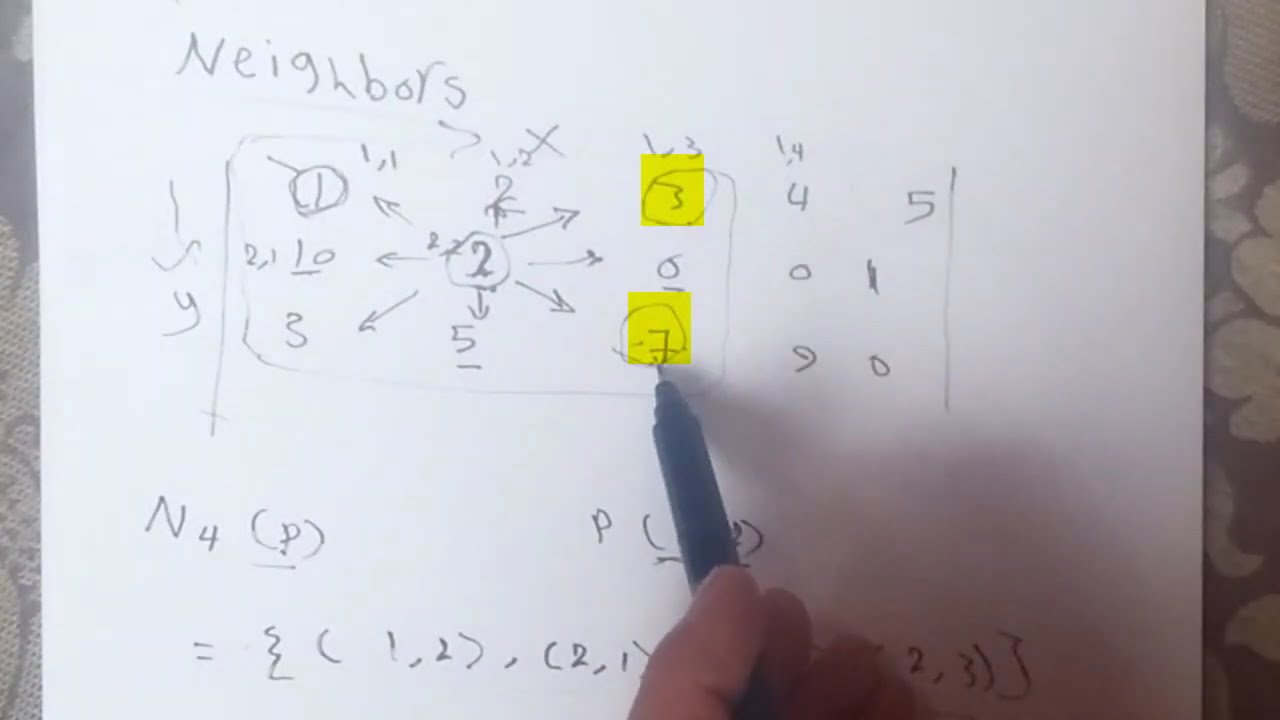 Neighbors
x
1,1 1,2 1,3 1,4
1 2 3 4 5
2,1 10 2,2 2 0 0 1
y 3 5 7 9 0
N4 (p) P (
= { ( 1,2), (2,1) 2,3)}